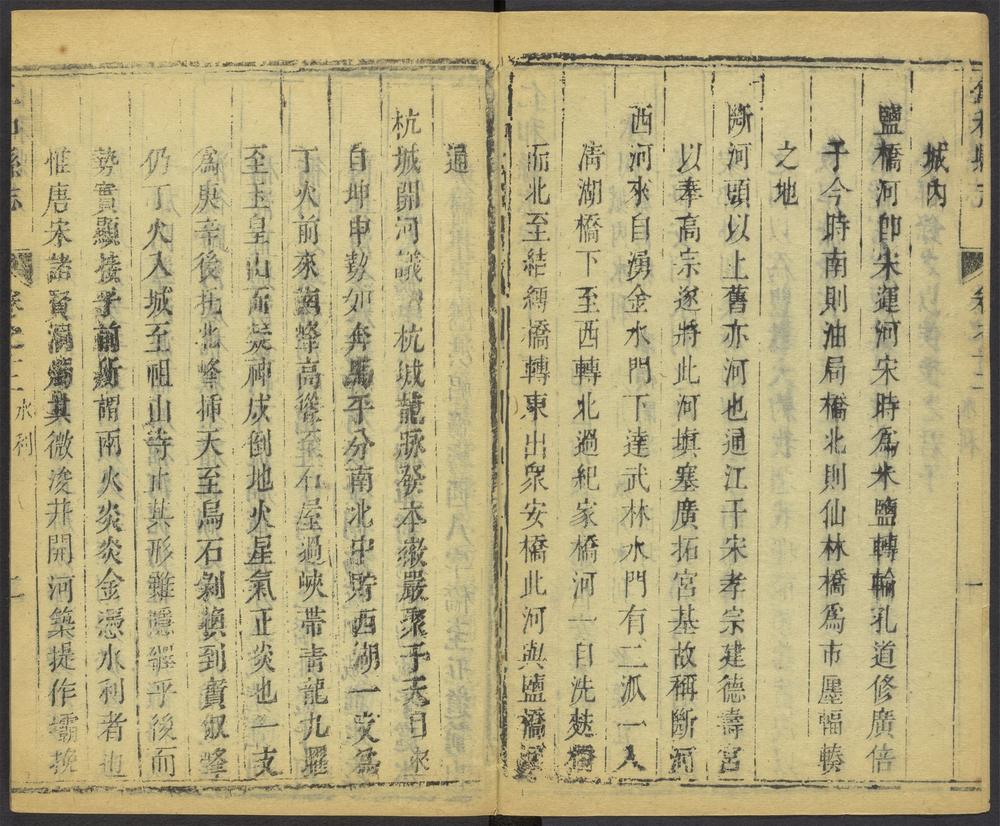 城內
鹽橋河卽宋運河宋時爲米鹽轉輸孔道修廣倍
于今時南則油局橋北則仙林橋爲市廛輻輳
之地
斷河頭以上舊亦河也通江干宋孝宗建德壽宮
以奉高宗遂將此河塡塞廣拓宮基故稱斷河
西河來自湧金水門下達武林水門有二派一入
淸湖橋下至西轉北過紀家橋河一自洗麩橋
而北至結縛橋轉東出眾安橋此河與鹽橋河
通
杭城開河議 杭城龍脉發本徽嚴聚于天目來
自坤申勢如奔馬平分南北中貯西湖一支爲
丁火前來 峰高聳至石屋過峽帶靑龍九曜
至玉皇山而凝禆成倒地火星氣正炎也一支
爲庚辛後抱北峰揷天至烏石剝換到寶俶峰
仍丁火入城至祖山寺止其形雖隱 乎後而
勢實顯 乎前所謂兩火炎炎金憑水利者也
惟唐宋諸賢洞 其微浚井開河築提作壩挽
縣志 卷之二 水利 二